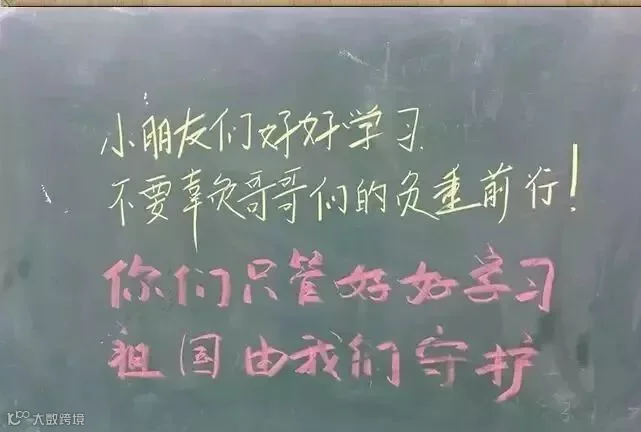 小朋友们好好学习
不要辜负哥哥们的负重前行!
你们只管好好学习
祖国由我们守护
大数跨境